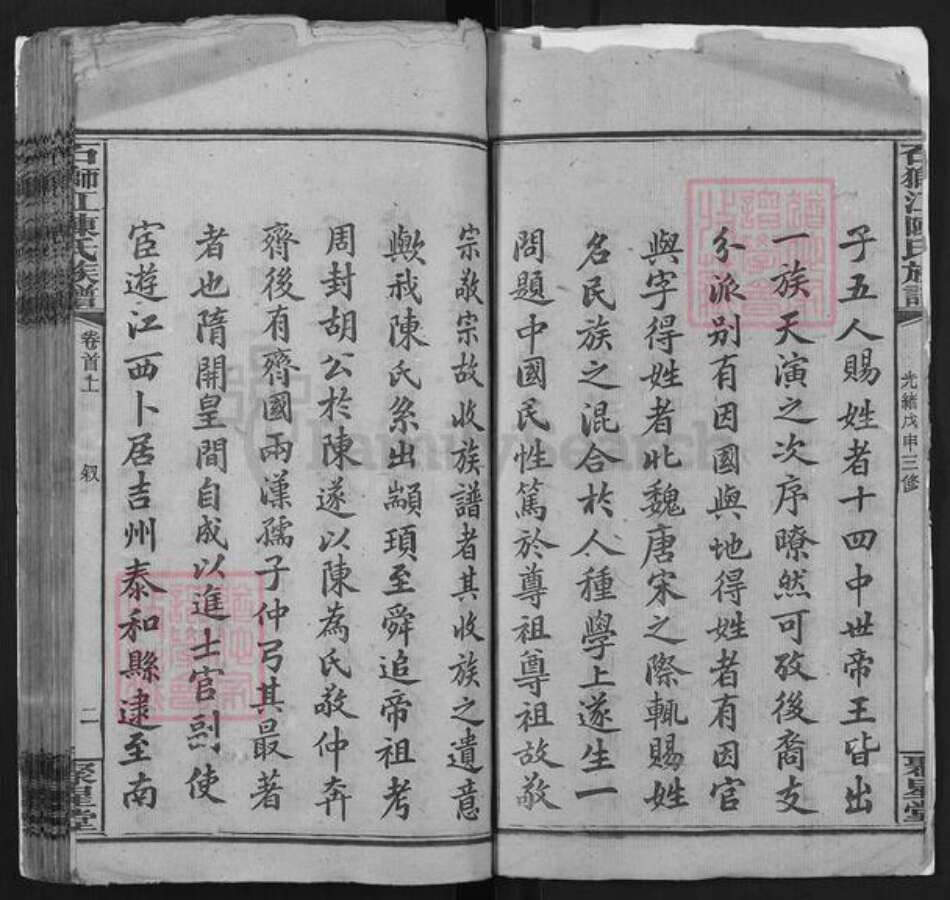 石獅江陳氏族譜
光緒戊申三修
聚星堂
子五人賜姓者十四中世帝王皆出
一族天演之次序瞭然可攷後裔支
分派别有因國與地得姓者有因官
與字得姓者北魏唐宋之際輒賜姓
名民族之混合於人種學上遂生一
問題中國民性篤於尊祖尊祖故敬
宗敬宗故收族譜者其收族之遺意
歟我陳氏系出顓頊至舜追帝祖考
周封胡公於陳遂以陳為氏敬仲奔
齊後有齊國兩漢孺子仲弓其最著
者也隋開皇間自成以進士官副使
宦遊江西卜居吉州泰和縣逮至南
石獅江陳氏族譜
卷首上
叙
二
聚星堂
FamilySearch